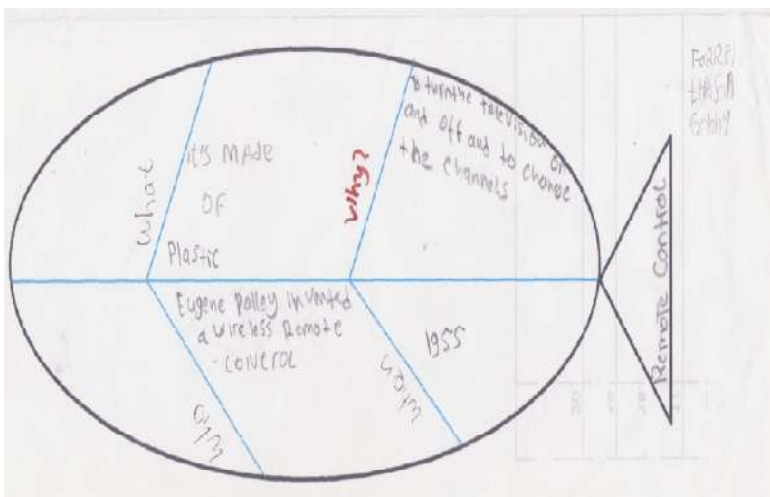 What
it's MADE
OF
Plastic
Why?
to turn the television on
and off and to change
the channels
Eugene Polley invented
a wireless Remote
control
Who
1955
when
Remote Control